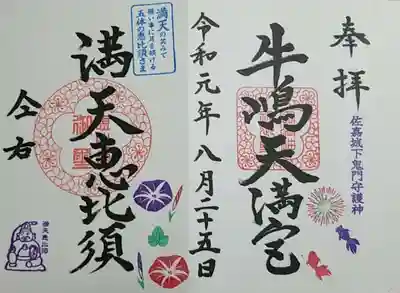 奉拝
佐嘉城下鬼門守護神
牛嶋天満宮
令和元年八月二十五日
満天の笑みで
願い事に耳を傾ける
五体の恵比須さま
満天恵比須
左右
満天恵比須